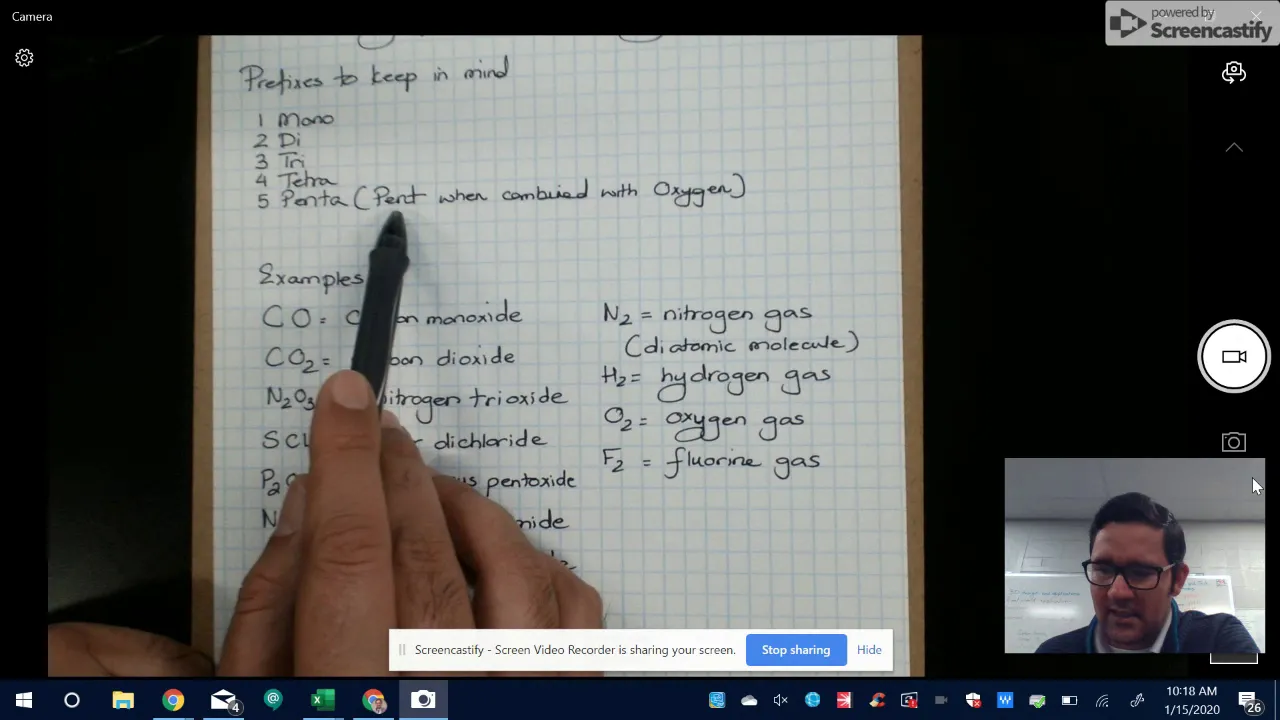 Camera
powered by
Screencastify
Prefixes to keep in mind
1 Mono
2 Di
3 Tri
4 Tetra
5 Penta (Pent when combined with Oxygen)
Examples
CO = on monoxide
CO2 = bon dioxide
N2O3 nitrogen trioxide
SCl dichloride
P2O us pentoxide
N mide
N2 = nitrogen gas
(diatomic molecule)
H2 = hydrogen gas
O2 = oxygen gas
F2 = fluorine gas
Screencastify - Screen Video Recorder is sharing your screen.
Stop sharing
Hide
4
10:18 AM
1/15/2020
26